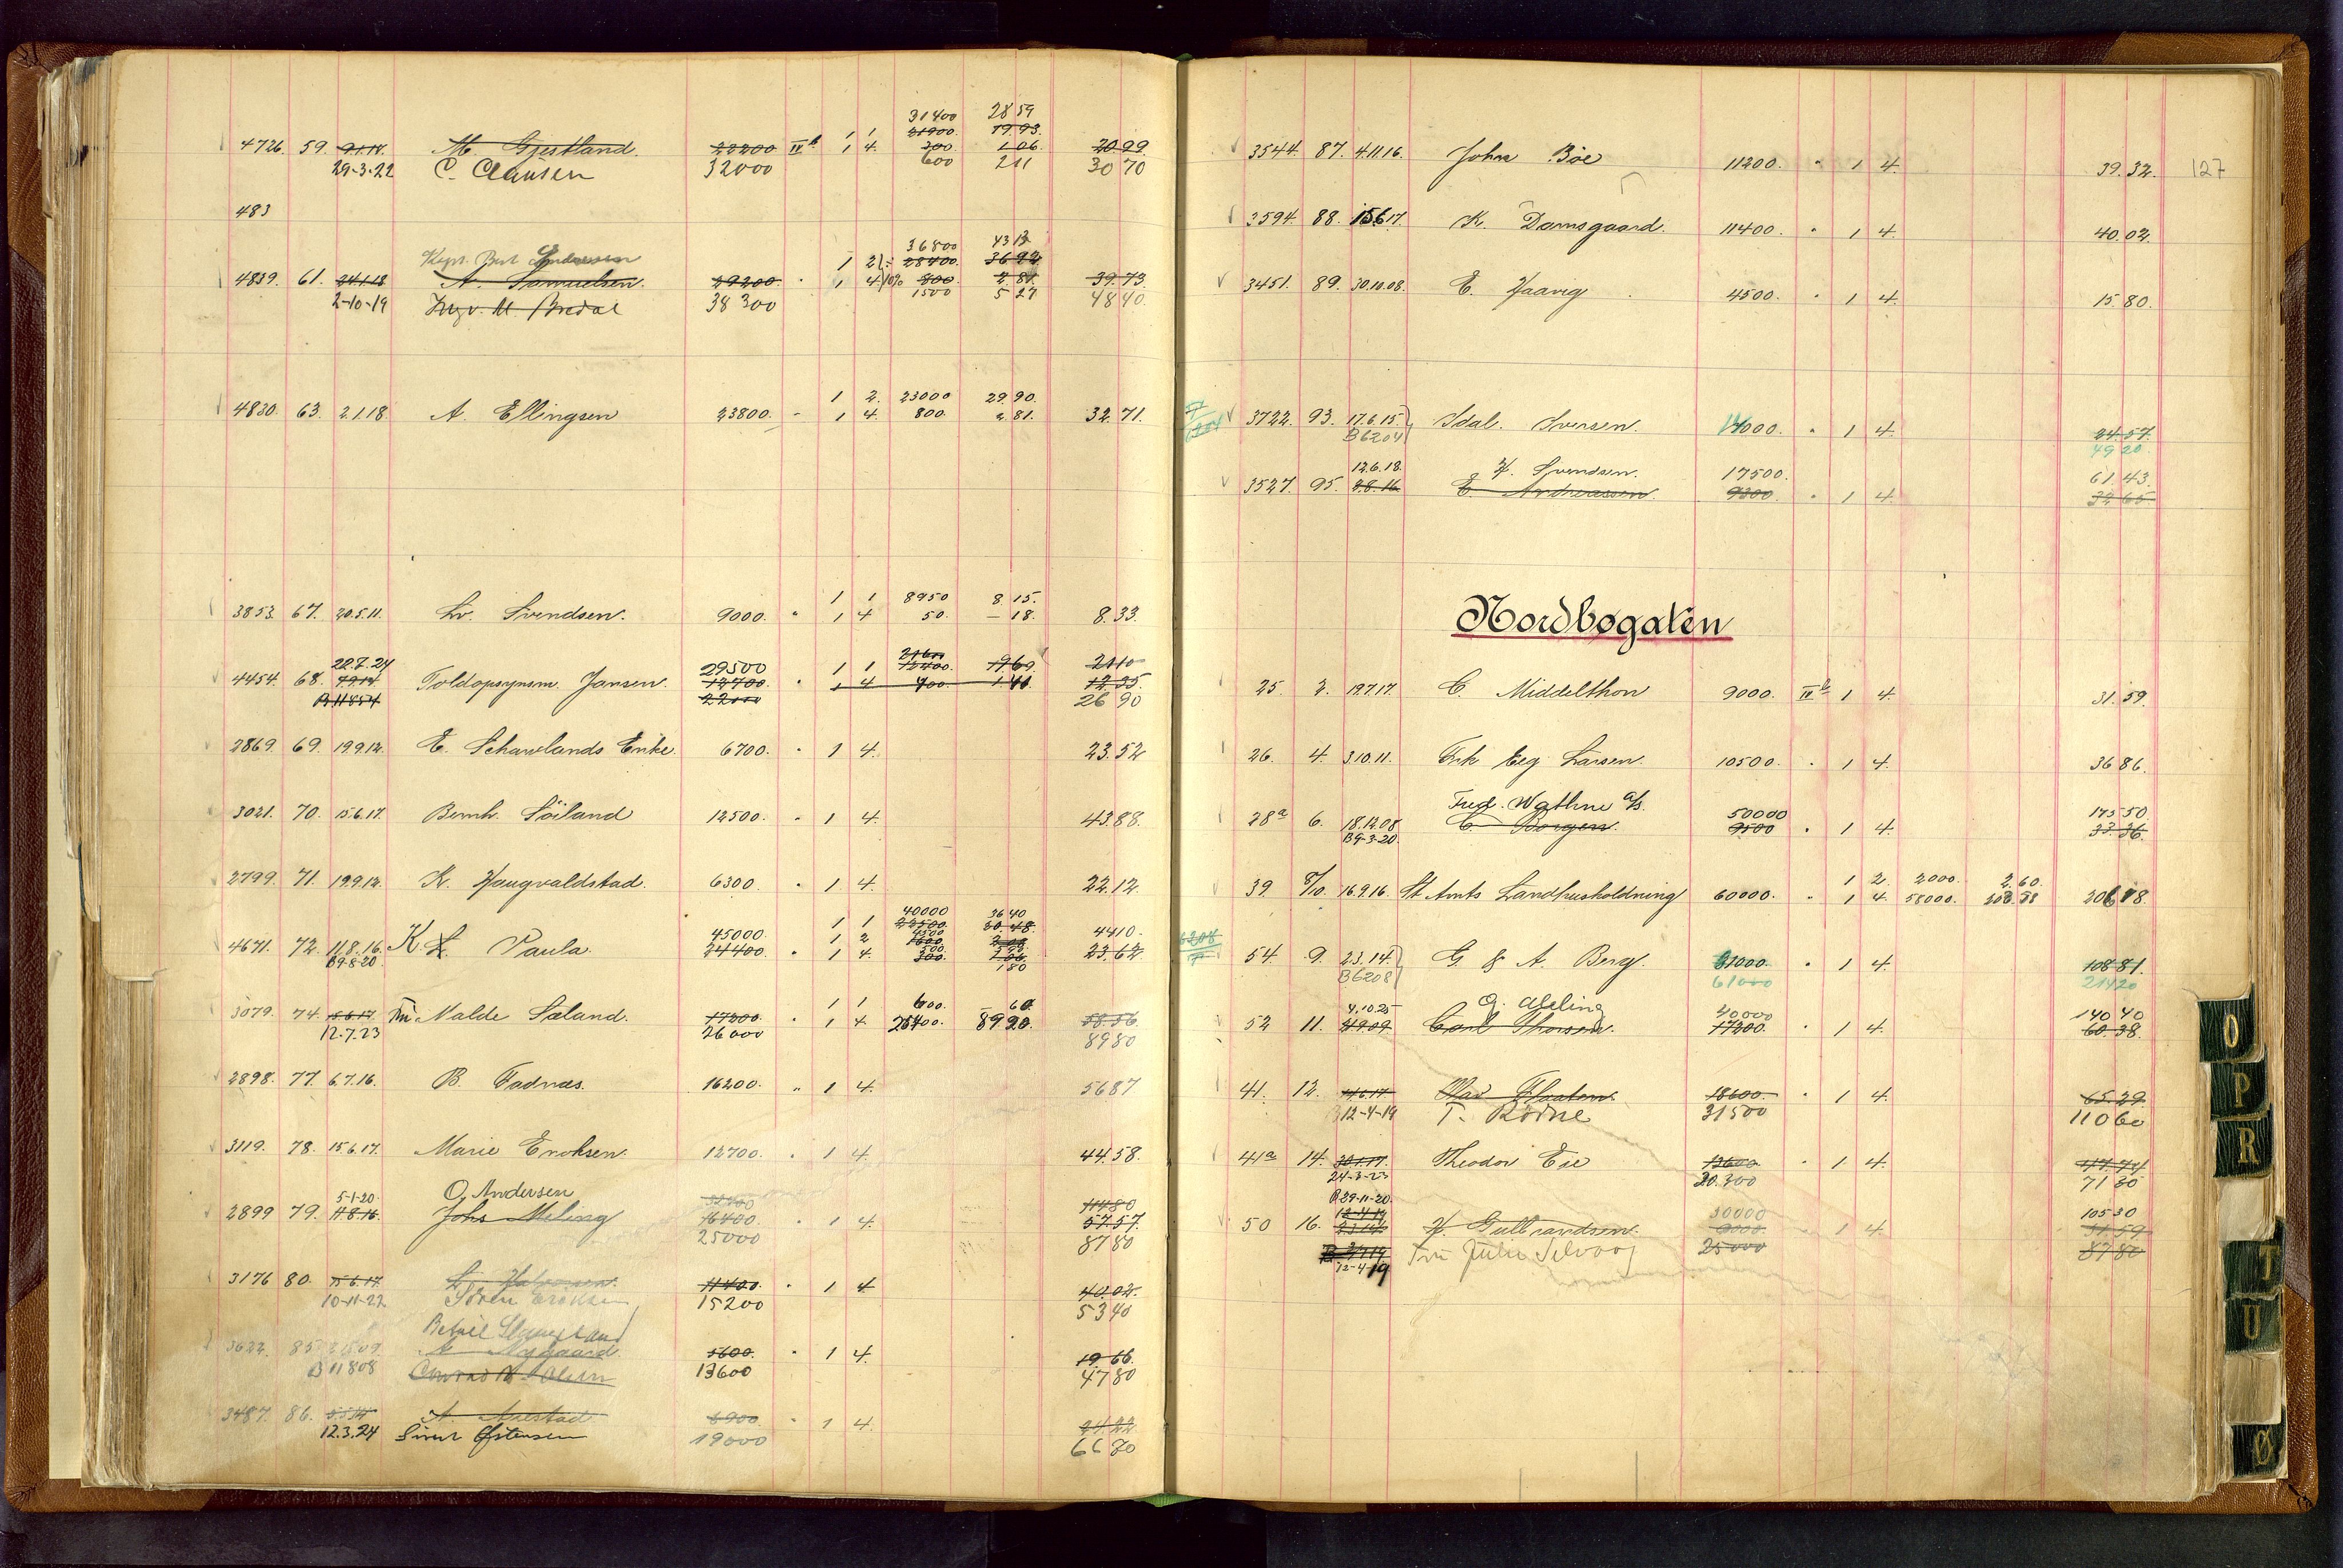 31400 2859
1 1 21900. 19.93.
4726. 59. 9.1.18. M. Gjestland. 22200 IV b 1 4. 300. 1.06. 20.99
29-3-22 C. Clausen 32000 600 211 30 70
483
36800 43 13
1 2 28400. 36 92
4839. 61. 24.1.18 A. Samuelsen. 29200. 1 4 10% 800. 2 81. 39.73.
2-10-19 Ingv. M. Bredal 38 300 1500 5 27 48 40
1 2. 23000 29.90.
4830. 63. 2.1.18 A. Ellingsen 23800. 1 4. 800. 2.81. 32.71.
1 1 8950 8 15.
3853. 67. 20.5.11. Lv. Svendsen. 9000. 1 4 50. – 18. 8.33.
22.7.24 29500 1 1 12400. 19 69 21 10
4454. 68. Toldopsynsm Jansen. 12700. 1 4 12.35.
B 11854 22000 26 90
2869. 69. 19.9.12. E. Schawlands Enke. 6700. 1 4. 23.52
3021. 70. 15.6.17. Bernh. Söiland 12500. 1 4. 43.88.
2799. 71. 19.9.12. K. Haugvaldstad. 6300. 1 4. 22.12.
40000 36 40
45000. 1 1 22500. 20.48. 44 10
4671. 72. 11.8.16. K. L. Paula. 24400. 1 4. 300. 23.62
B9-8-20 180
1 1 600. – 60
3079. 74. 15.6.17 Malde Sæland. 17200. 1 4 25400. 89 20. 58.56
12.7.23 26000 89 80
2898. 77. 6.7.16. B. Fadnæs. 16200. 1 4. 56 87
3119. 78. 15.6.17. Marie Enoksen. 12700. 1 4 44.58.
5-1-20. O. Andersen 114 80
2899 79. 11.8.16. Johs Meling 16400. 1 4. 57.57.
25000 87 80
3176 80. 15.6.17. 11400. 1 4 40.02.
10-11-22 Sören Eriksen 15200 53 40
Bertil
3622. 85 Nygaard. 5600. 1 4. 19.66.
B 11808 13600 47 80
3487. 86. A. Auestad 6900. 1 4. 24.22
12.3.24 Sivert Østensen 19000 66 70
127
3544. 87. 4.11.16. John Böe 11200. 1 4. 39.32.
3594. 88. 15.6.17. K. Damsgaard. 11400. 1 4. 40.02.
3451. 89. 30.10.08. E. Haavig 4500. 1 4. 15.80.
3722. 93. 17.6.15. Idal. Iversen. 14000. 1 4. 24.57.
B6204 49 20
12.6.18. H. Svendsen. 17500. 61.43.
3527. 95. 2.8.16 E. Andreassen. 9300. 1 4. 32 65
Nordbogaten
25. 2. 19.7.17. C. Middelthon 9000. IV b 1 4. 31.59.
26. 4. 3.10.11. Frk Eeg Larsen. 10500. 1 4. 36 86.
Fred. Wathne A/S. 50000 175 50
28a 6. 18.12.08 C. Borgen. 9500 1 4. 33.36.
B9-3-20.
1 2. 2000. 2.60.
39. 8/10. 16.9.16. St Amts Landhusholdning 60000. 1 4. 58000. 203 58 206 18.
6208
54. 9. 2.3.14. G. & A. Berg. 31000. 1 4. 108 81.
B6208 61000 214 20
4.10.25 40000 140 40
52 11. 4.9.09 Carl Thorsen. 17200. 1 4. 60.38.
41. 12. 14.6.17 18600. 1 4. 65.29
12-4-19 T. Rødne 31500 110 60
41a 14. 30.1.17. Theodor Eie 13600 1 4. 47.74
24-3-23 20.300 71 30
B29-11-20. 30000 105 30
50 16. H. Gulbrandsen. 9000. 1 4. 31.59
12-4-19 Julie Selvaag 25000 87 80
O
P
R
T
U
Ø